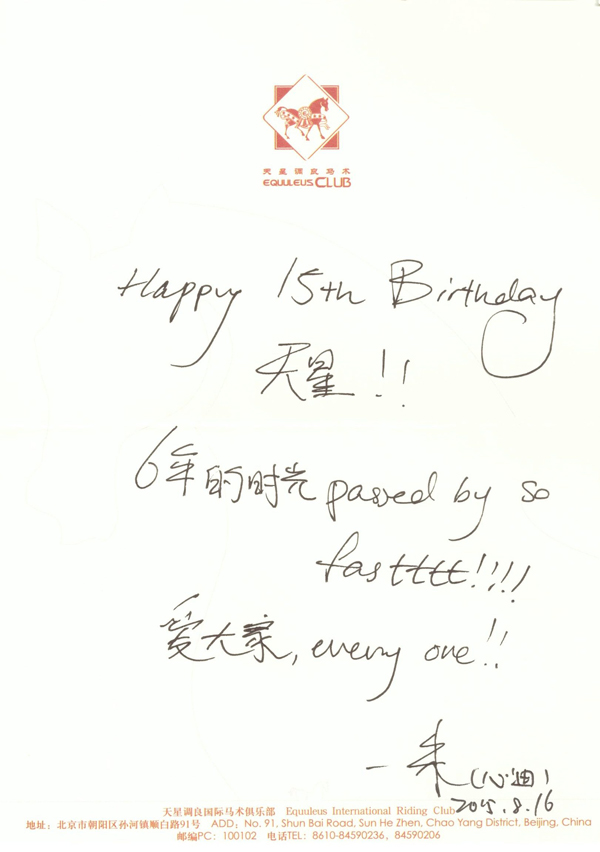 天星调良马术
EQUULEUS CLUB
Happy 15th Birthday
天星!!
6年的时光 passed by so
fastttt!!!!
爱大家, every one!!
一朱(心迪)
2015.8.16
天星调良国际马术俱乐部 Equuleus International Riding Club
地址: 北京市朝阳区孙河镇顺白路91号 ADD: No. 91, Shun Bai Road, Sun He Zhen, Chao Yang District, Beijing, China
邮编PC: 100102 电话TEL: 8610-84590236, 84590206